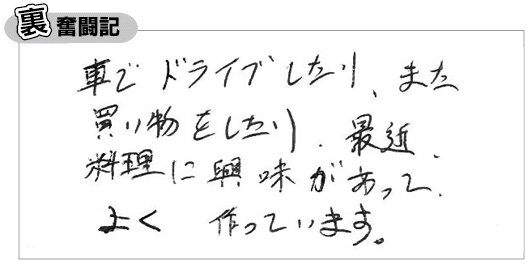 裏 奮闘記
車でドライブしたり、また
買い物をしたり、最近、
料理に興味があって、
よく 作っています。